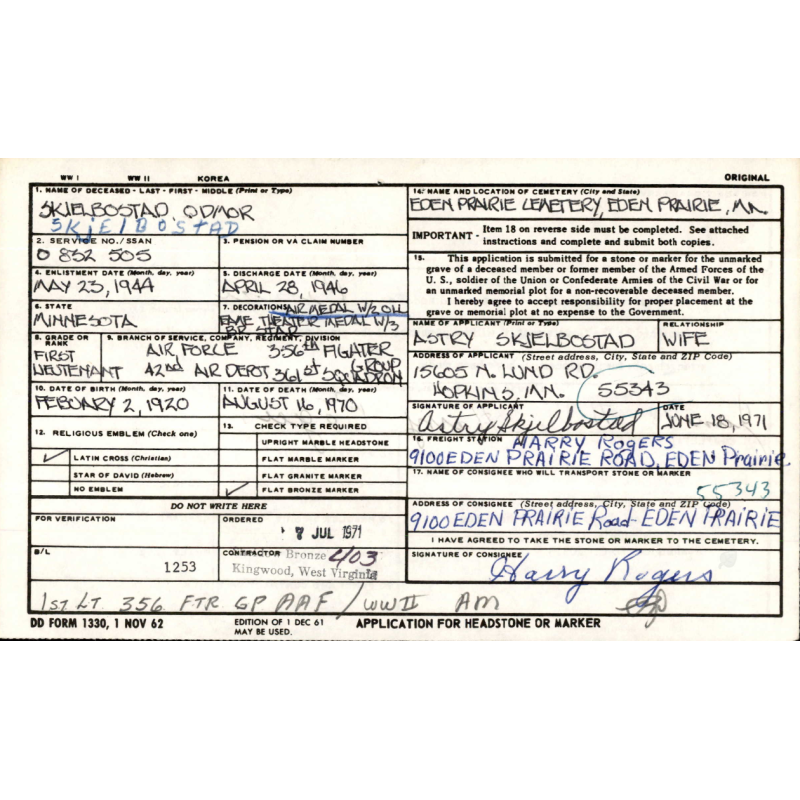 WW I WW II KOREA ORIGINAL
1. NAME OF DECEASED - LAST - FIRST - MIDDLE (Print or Type)
SKJELBOSTAD, ODMOR
SKJELBOSTAD
2. SERVICE NO./SSAN
O 832 505
3. PENSION OR VA CLAIM NUMBER
4. ENLISTMENT DATE (Month, day, year)
MAY 23, 1944
5. DISCHARGE DATE (Month, day, year)
APRIL 28, 1946
6. STATE
MINNESOTA
7. DECORATIONS AIR MEDAL W/2 OLL
EAME THEATER MEDAL W/3
BR STAR
8. GRADE OR RANK
FIRST
LIEUTENANT
9. BRANCH OF SERVICE, COMPANY, REGIMENT, DIVISION
AIR FORCE 356th FIGHTER
GROUP
42nd AIR DEPOT 361st SQUADRON
10. DATE OF BIRTH (Month, day, year)
FEBUARY 2, 1920
11. DATE OF DEATH (Month, day, year)
AUGUST 16, 1970
12. RELIGIOUS EMBLEM (Check one)
✓ LATIN CROSS (Christian)
STAR OF DAVID (Hebrew)
NO EMBLEM
13. CHECK TYPE REQUIRED
UPRIGHT MARBLE HEADSTONE
FLAT MARBLE MARKER
FLAT GRANITE MARKER
✓ FLAT BRONZE MARKER
DO NOT WRITE HERE
FOR VERIFICATION
ORDERED
7 JUL 1971
B/L
1253
CONTRACTOR Bronze 403
Kingwood, West Virginia
14. NAME AND LOCATION OF CEMETERY (City and State)
EDEN PRAIRIE CEMETERY, EDEN PRAIRIE, MN.
IMPORTANT - Item 18 on reverse side must be completed. See attached
instructions and complete and submit both copies.
15. This application is submitted for a stone or marker for the unmarked
grave of a deceased member or former member of the Armed Forces of the
U. S., soldier of the Union or Confederate Armies of the Civil War or for
an unmarked memorial plot for a non-recoverable deceased member.
I hereby agree to accept responsibility for proper placement at the
grave or memorial plot at no expense to the Government.
NAME OF APPLICANT (Print or Type)
ASTRY SKJELBOSTAD
RELATIONSHIP
WIFE
ADDRESS OF APPLICANT (Street address, City, State and ZIP Code)
15605 N. LUND RD.
HOPKINS, MN. 55343
SIGNATURE OF APPLICANT
Astry Skjelbostad
DATE
JUNE 18, 1971
16. FREIGHT STATION HARRY ROGERS
9100 EDEN PRAIRIE ROAD, EDEN Prairie
17. NAME OF CONSIGNEE WHO WILL TRANSPORT STONE OR MARKER
55343
ADDRESS OF CONSIGNEE (Street address, City, State and ZIP Code)
9100 EDEN PRAIRIE Road - EDEN PRAIRIE
I HAVE AGREED TO TAKE THE STONE OR MARKER TO THE CEMETERY.
SIGNATURE OF CONSIGNEE
Harry Rogers
1ST LT 356 FTR GP AAF / WW II AM
DD FORM 1330, 1 NOV 62
EDITION OF 1 DEC 61
MAY BE USED.
APPLICATION FOR HEADSTONE OR MARKER